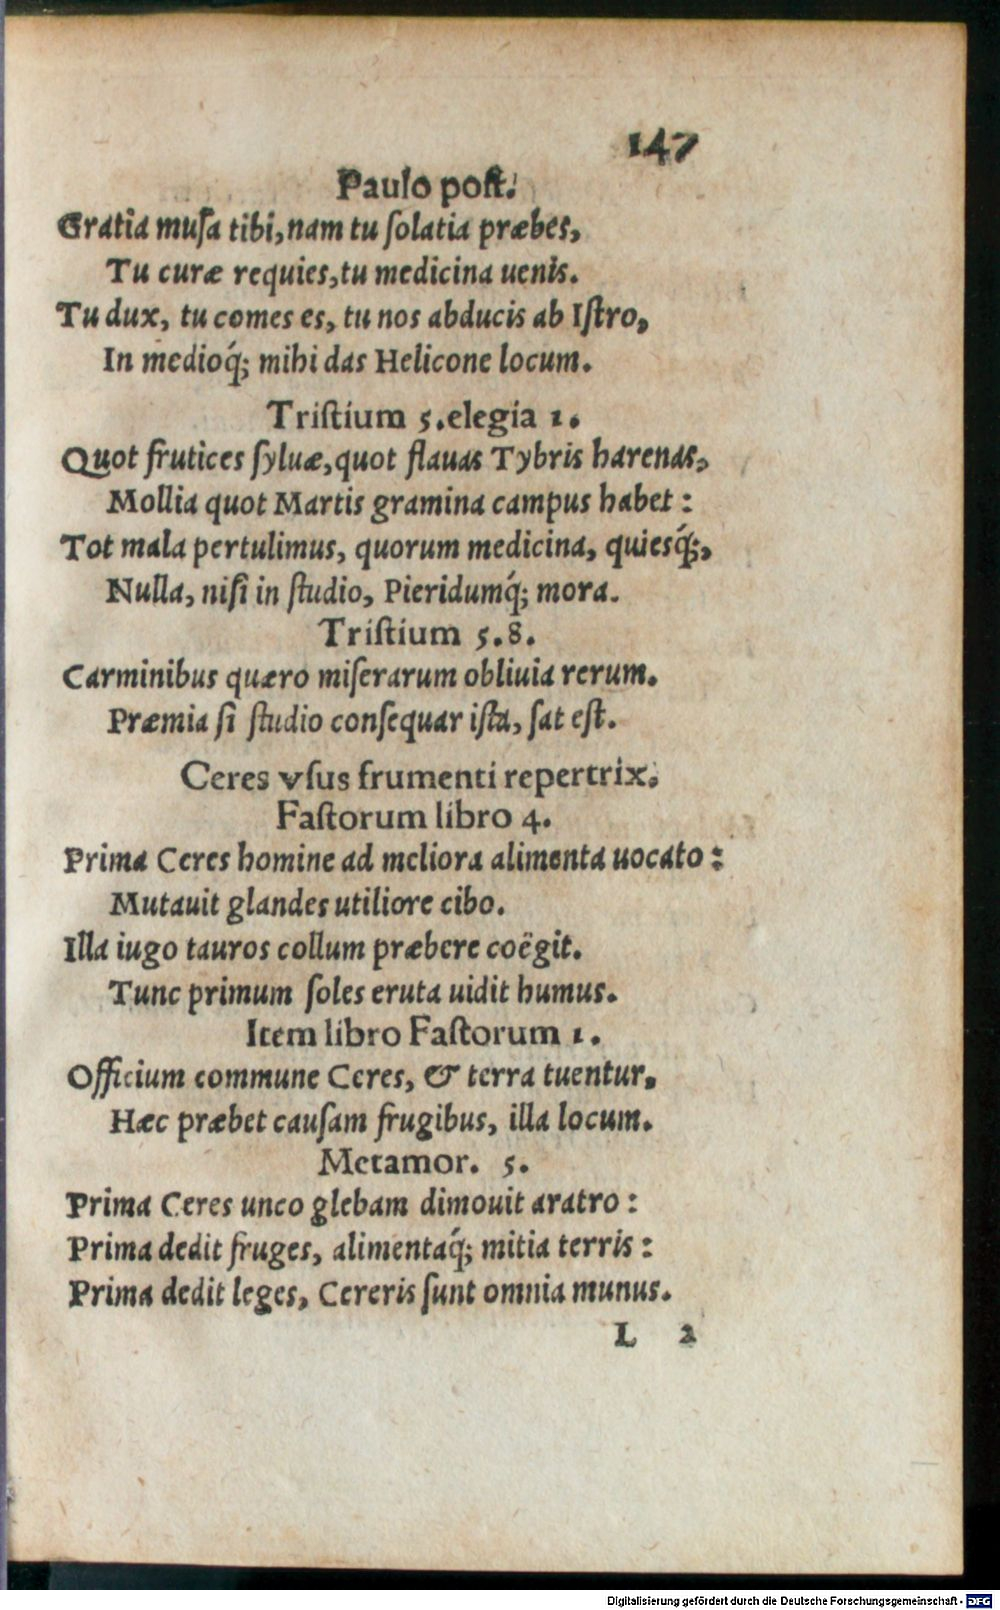 147
Paulo poſt.
Gratia muſa tibi, nam tu ſolatia præbes,
Tu curæ requies, tu medicina uenis.
Tu dux, tu comes es, tu nos abducis ab Iſtro,
In medioq́; mihi das Helicone locum.
Triſtium 5. elegia 1.
Quot frutices ſyluæ, quot flauas Tybris harenas,
Mollia quot Martis gramina campus habet:
Tot mala pertulimus, quorum medicina, quiesq́;,
Nulla, niſi in ſtudio, Pieridumq́; mora.
Triſtium 5.8.
Carminibus quæro miſerarum obliuia rerum.
Præmia ſi ſtudio conſequar iſta, ſat eſt.
Ceres vſus frumenti repertrix.
Faſtorum libro 4.
Prima Ceres homine ad meliora alimenta uocato:
Mutauit glandes utiliore cibo.
Illa iugo tauros collum præbere coëgit.
Tunc primum ſoles eruta uidit humus.
Item libro Faſtorum 1.
Officium commune Ceres, & terra tuentur,
Hæc præbet cauſam frugibus, illa locum.
Metamor. 5.
Prima Ceres unco glebam dimouit aratro:
Prima dedit fruges, alimentaq́; mitia terris:
Prima dedit leges, Cereris ſunt omnia munus.
L 2
Digitalisierung gefördert durch die Deutsche Forschungsgemeinschaft - DFG